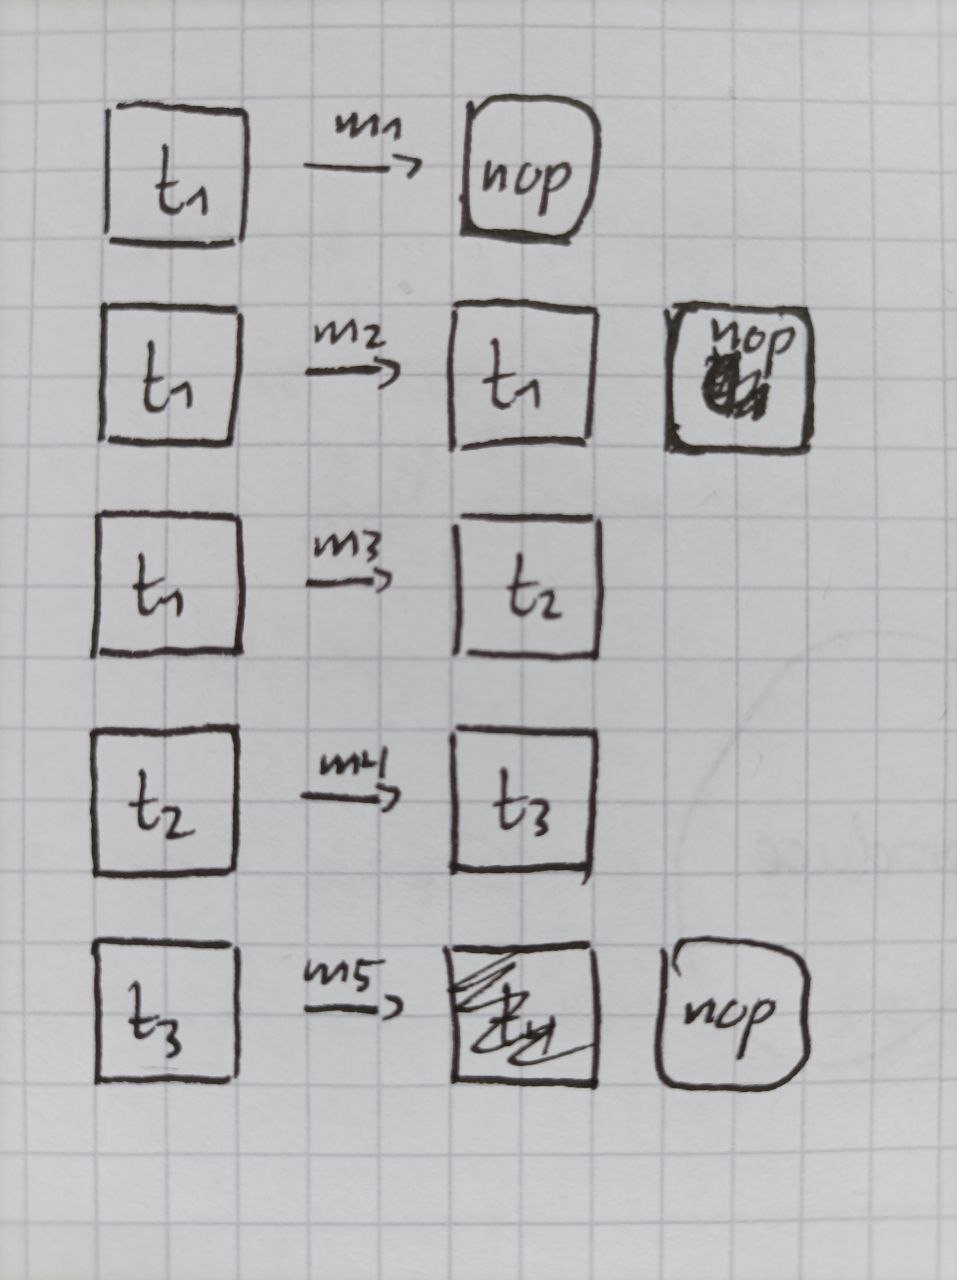 t1 m1 nop
t1 m2 t1 nop
t1 m3 t2
t2 m4 t3
t3 m5 nop